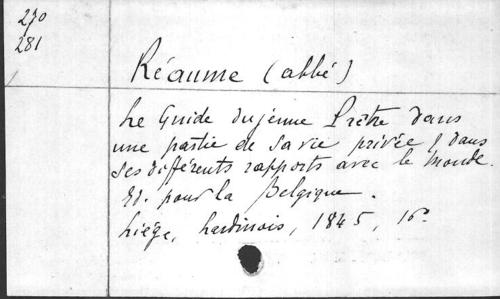 270
281
Réaume (abbé)
Le Guide du jeune Prêtre dans
une partie de sa vie privée & dans
ses différents rapports avec le monde.
Ed. pour la Belgique.
Liège, Lardinois, 1845, 16°